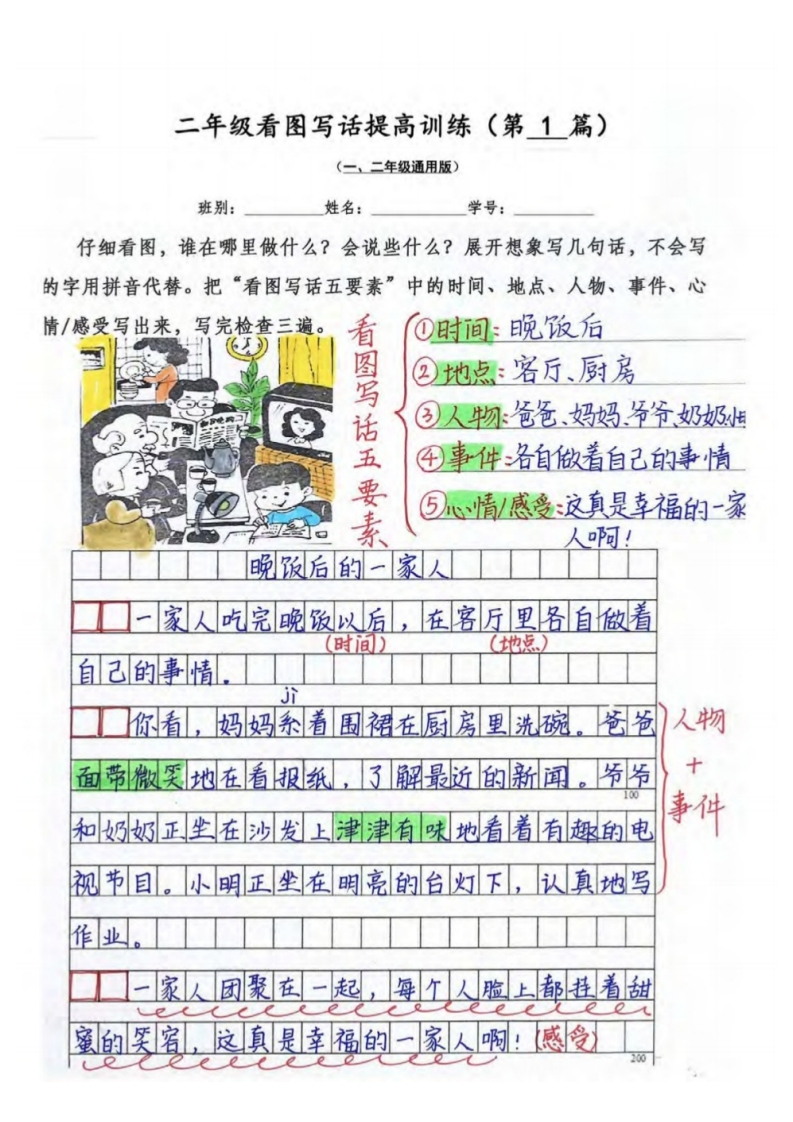 二年级看图写话提高训练（第 1 篇）
（一、二年级通用版）
班别：________ 姓名：________ 学号：________
仔细看图，谁在哪里做什么？会说些什么？展开想象写几句话，不会写
的字用拼音代替。把“看图写话五要素”中的时间、地点、人物、事件、心
情/感受写出来，写完检查三遍。
看图写话五要素
①时间：晚饭后
②地点：客厅、厨房
③人物：爸爸、妈妈、爷爷、奶奶、
④事件：各自做着自己的事情
⑤心情/感受：这真是幸福的一家
人啊！
晚饭后的一家人
一家人吃完晚饭以后，在客厅里各自做着
(时间) (地点)
自己的事情。
jì
你看，妈妈系着围裙在厨房里洗碗。爸爸
面带微笑地在看报纸，了解最近的新闻。爷爷
100
和奶奶正坐在沙发上津津有味地看着有趣的电
视节目。小明正坐在明亮的台灯下，认真地写
作业。
人物
+
事件
一家人团聚在一起，每个人脸上都挂着甜
蜜的笑容，这真是幸福的一家人啊！(感受)
200